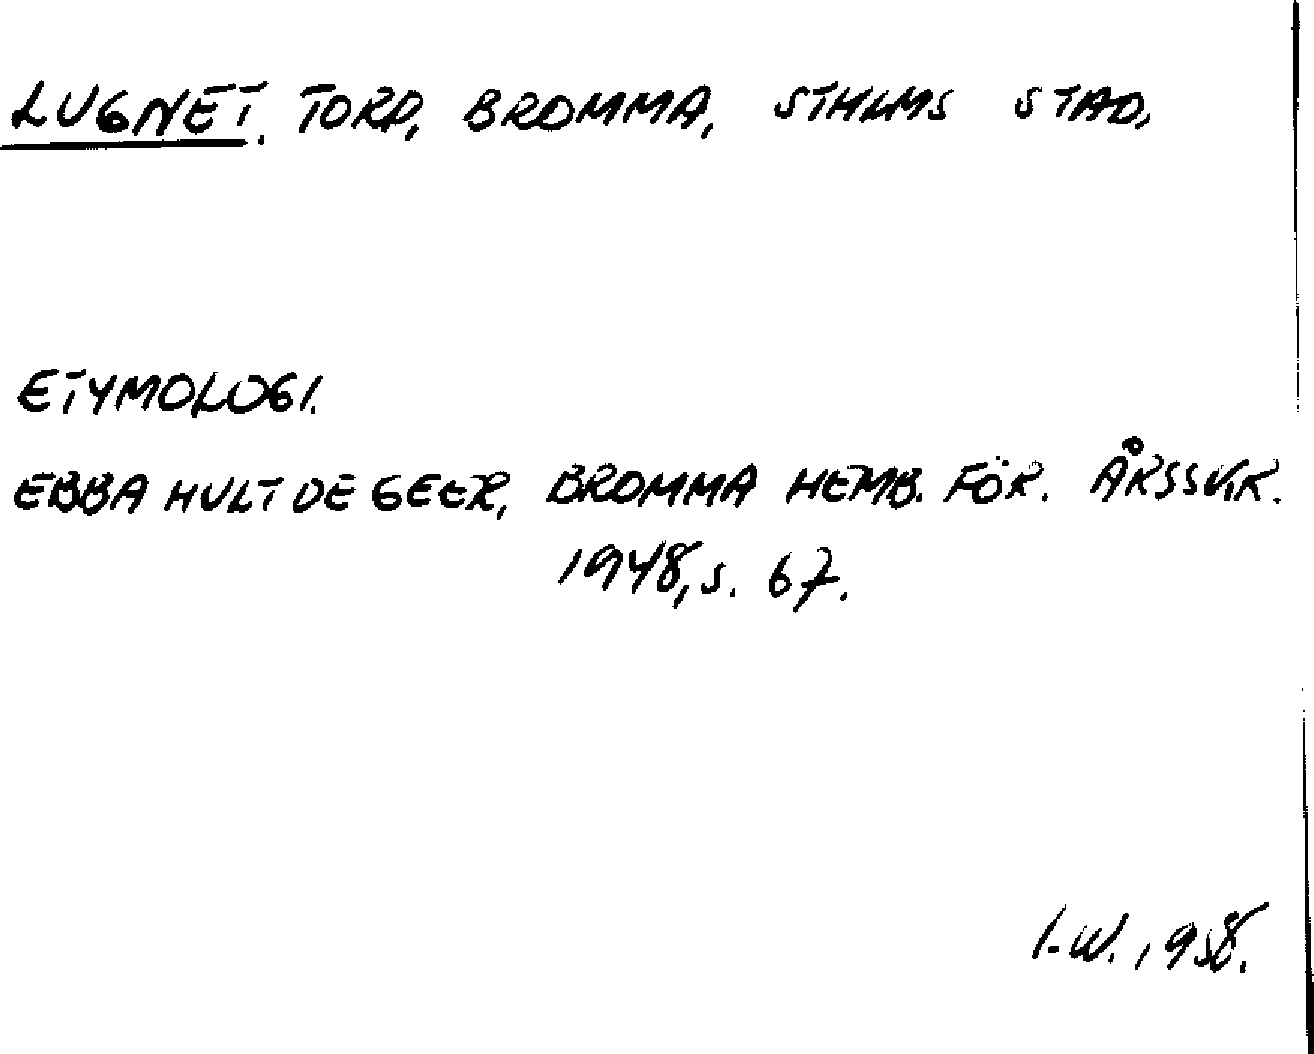 LUGNET. TORP, BROMMA, STHLMS STAD,
ETYMOLOGI.
EBBA HULT DE GEER, BROMMA HEMB. FÖR. ÅRSSKR.
1948, s. 67.
I.W. 1958.